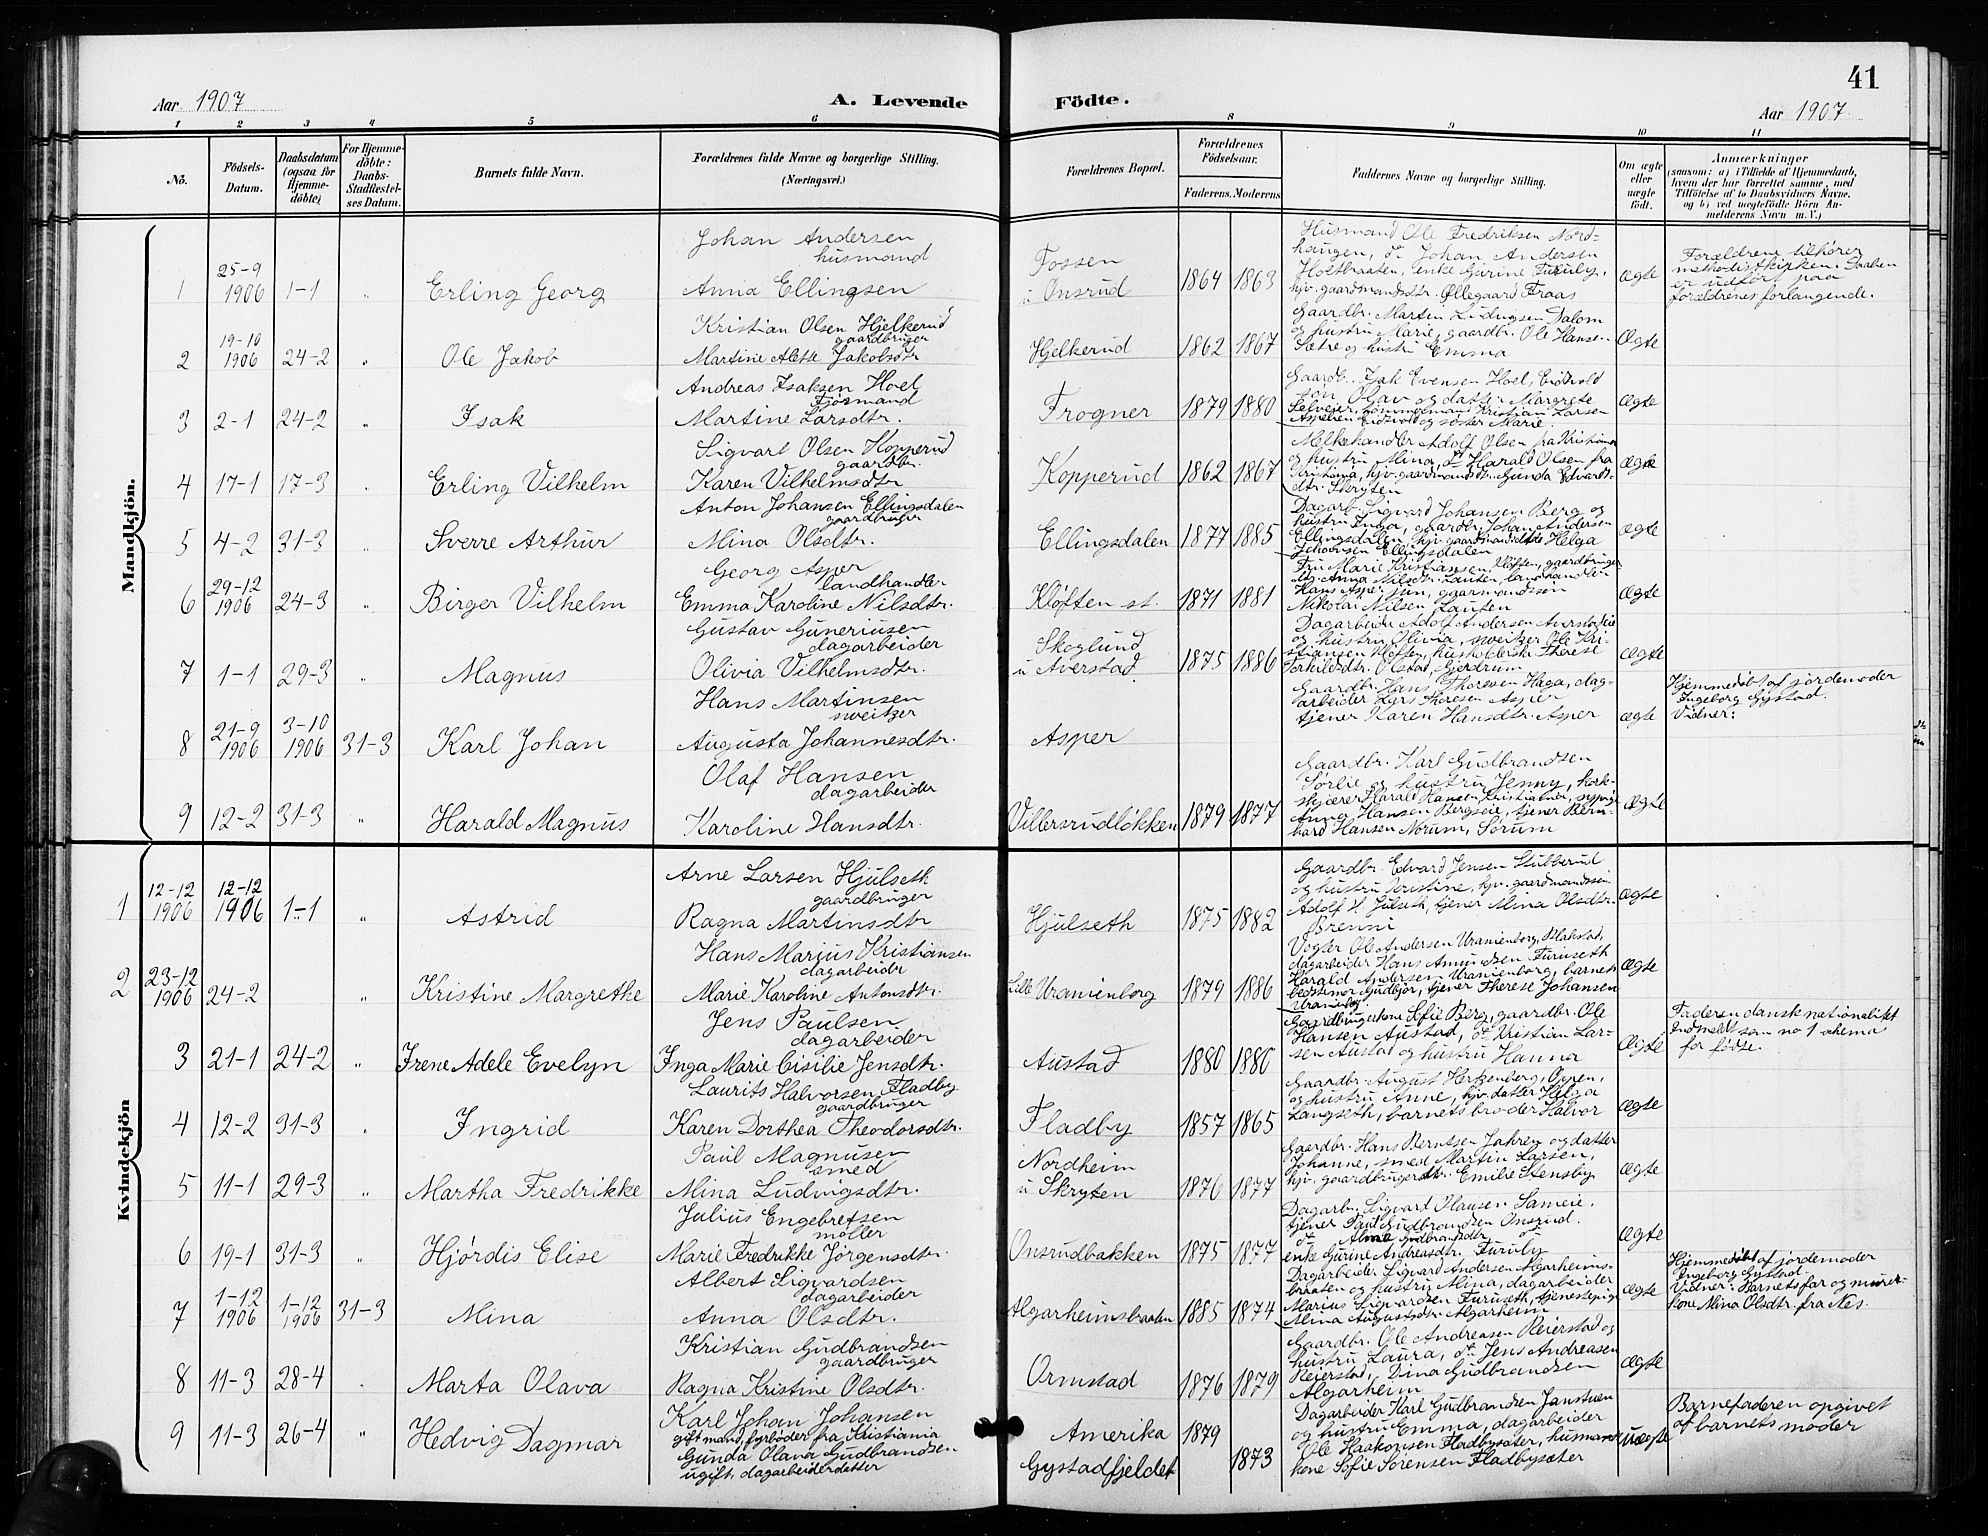 41
Aar 1907
A. Levende Födte.
Aar 1907
1 2 3 4 5 6 8 9 10 11
Nö.
Födsels-Datum.
Daabsdatum (ogsaa for Hjemme-döbte)
For Hjemme-döbte: Daabs-Stadfæstel-ses Datum.
Barnets fulde Navn.
Forældrenes fulde Navne og borgerlige Stilling. (Næringsvei.)
Forældrenes Bopæl.
Forældrenes Födselsaar.
Faderens. Moderens
Faddernes Navne og borgerlige Stilling.
Om ægte eller uægte födt.
Anmærkninger
(saasom: a) i Tilfælde af Hjemmedaab, hvem der har forrettet samme, med Tilföielse af to Daabsvidners Navne, og b) ved uegtefödte Börn An-melderens Navn m. V.)
Mandkjön.
Johan Andersen
husmand
1 25-9 1906 1-1 " Erling Georg
Anna Ellingsen
Fossen
u Onsrud 1864 1863
Husmand Ole Fredriksen Nord-
haugen, do Johan Andersen
Holtbraaten, enke Gurine Furuly,
hjv. gaardmandsdtr. Øllegaard Fraas
ægte
Forældrene tilhører
methodistkirken. Daaben
er udført paa
forældrenes forlangende.
Kristian Olsen Hjelkerud
gaardbruger
2 19-10 1906 24-2 " Ole Jakob
Martine Alette Jakobsdtr
Hjelkerud 1862 1867
Gaardbr. Martin Ludvigsen Dalom
og hustru Marie, gaardbr. Ole Hansen
Sætre og hustru Emma
Ægte
Andreas Isaksen Hoel
Fjøsmand
3 2-1 24-2 " Isak
Martine Larsdtr.
Frogner 1879 1880
Gaardb. Isak Evensen Hoel, Eidsvold
søn Olav og datter Margrete
Selveier, Kristian Larsen
Eidsvold og søster Marie.
Ægte
Sigvart Olsen Kopperud
gaardbr.
4 17-1 17-3 " Erling Vilhelm
Karen Vilhelmsdtr
Kopperud 1862 1867
Melkehandler Adolf Olsen fra Kristiania
og hustru Mina, do Harald Olsen fra
Kristiania, hjv. gaardmandsdtr. Gunda Edvards-
dtr. Skryten
Ægte
Anton Johansen Ellingsdalen
gaardbruger
5 4-2 31-3 " Sverre Arthur
Mina Olsdtr.
Ellingsdalen 1877 1885
Dagarb. Sigvard Johansen Berg og
hustru Inga, gaardbr. Johan Andersen
Ellingsdalen, hjv. gaardmandsdtr Helga
Johansen Ellingsdalen
Ægte
Georg Asper
landhandler
6 29-12 1906 24-3 " Birger Vilhelm
Emma Karoline Nilsdtr.
Kløften st. 1871 1881
Fru Marie Kristiansen Kløften, gaardbruger
Anna Nilsdtr. Lauten, landhandler
Hans Asper jun, gaarmandssøn
Nikolai Nilsen Lauten
Ægte
Gustav Guneriusen
dagarbeider
7 1-1 29-3 " Magnus
Olivia Vilhelmsdtr.
Skoglund
u Averstad 1875 1886
Dagarbeider Adolf Andersen Averstadeie
og hustru Olivia, sveitzer Ole Kri-
stiansen Kløften, husholderske Therese
Torkildsdtr. Olstad, Gjerdrum
Ægte
Hans Martinsen
sveitzer
8 21-9 1906 3-10 1906 31-3 Karl Johan
Augusta Johannesdtr.
Asper
Gaardbr. Hans Thoresen Haga, dag-
arbeider Lars Thoresen Asper
tjener Karen Hansdtr. Asper
ægte
Hjemmedøbt af jordemoder
Ingeborg Gystad.
Vidner:
Olaf Hansen
dagarbeider
9 12-2 31-3 " Harald Magnus
Karoline Hansdtr.
Villersrudløkken 1879 1877
Gaardbr. Karl Gudbrandsen
Sørlie og hustru Jenny, kork-
skjærer Harald Hansen Kristiania, sypige
Anna Hansen Bergseie, tjener Bern-
hard Hansen Norum, Sørum
Ægte
Kvindekjön
Arne Larsen Hjulseth
gaardbruger
1 12-12 1906 12-12 1906 1-1 " Astrid
Ragna Martinsdtr
Hjulseth 1875 1882
Gaardbr. Edvard Jensen Stubberud
og hustru Kristine, hjv. gaardmandssøn
Adolf H. Julseth, tjener Mina Olsdtr.
Brenni
Ægte
Hans Marius Kristiansen
dagarbeider
2 23-12 1906 24-2 " Kristine Margrethe
Marie Karoline Antonsdtr.
Lille Uranienborg 1879 1886
Vogter Ole Andersen Uranienborg, Blakstad,
dagarbeider Hans Amundsen Furuseth
Harald Andersen Uranienborg, barnets
bedstemor Gudbjør, tjener Therese Johansen
Uranienborg
Ægte
Jens Paulsen
dagarbeider
3 21-1 24-2 " Irene Adele Evelyn
Inga Marie Cisilie Jensdtr.
Austad 1880 1880
Gaardbrugerkone Sofie Berg, gaardbr. Ole
Hansen Austad, do Kristian Lar-
sen Austad og hustru Hanna
Ægte
Faderen dansk nationalitet
Indmeldt som no 1 skema
for fødte.
Laurits Halvorsen Fladby
gaardbruger
4 12-2 31-3 " Ingrid
Karen Dorthea Theodorsdtr.
Fladby 1857 1865
Gaardbr. August Hertzenberg, Oppen,
og hustru Anne, hjv. datter Helga
Langseth, barnets broder Halvor
Ægte
Paul Magnusen
smed
5 11-1 29-3 " Martha Fredrikke
Mina Ludvigsdtr.
Nordheim
u Skryten 1876 1877
Gaardbr. Hans Berntsen Jahren og datter
Johanne, smed Martin Larsen,
hjv. gaardbrugerdtr. Emilie Stensby
Ægte
Julius Engebretsen
møller
6 19-1 31-3 " Hjørdis Elise
Marie Fredrikke Jørgensdtr.
Onsrudbakken 1875 1877
Dagarb. Sigvard Hansen Sameie,
tjener Paul Gudbrandsen Onsrud.
do Alma Gudbrandsdtr do
enke Gurine Andreasdtr. Furuly
Ægte
Albert Sigvardsen
dagarbeider
7 1-12 1906 1-12 1906 31-3 Mina
Anna Olsdtr.
Algarheimsbraaten 1885 1874
Dagarbeider Sigvard Andersen Algarheims-
braaten og hustru Mina, dagarbeider
Marius Sigvardsen Furuseth, tjenestepige
Mina Augustsdtr. Algarheim
Ægte
Hjemmedøbt af jordemoder
Ingeborg Gystad.
Vidner: Barnets far og murer-
kone Mina Olsdtr. fra Nes.
Kristian Gudbrandsen
gaardbruger
8 11-3 28-4 . Marta Olava
Ragna Kristine Olsdtr.
Ormstad 1876 1879
Gaardbr. Ole Andreasen Reierstad og
hustru Laura, do Jens Andreasen
Reierstad, Dina Gudbrandsen
Algarheim
Ægte
Karl Johan Johansen
gift mand, forbøder fra Kristiania
9 11-3 26-4 " Hedvig Dagmar
Gunda Olava Gudbrandsen
ugift, dagarbeiderdatter
Amerika 1879
Gystadfjeldet 1873
Dagarbeider Karl Gudbrandsen Janstuen
og hustru Emma, dagarbeider
Ole Haakonsen Fladbysæter, husmands-
kone Sofie Sørensen Fladbysæter
Uægte
Barnefaderen opgivet
af barnets moder